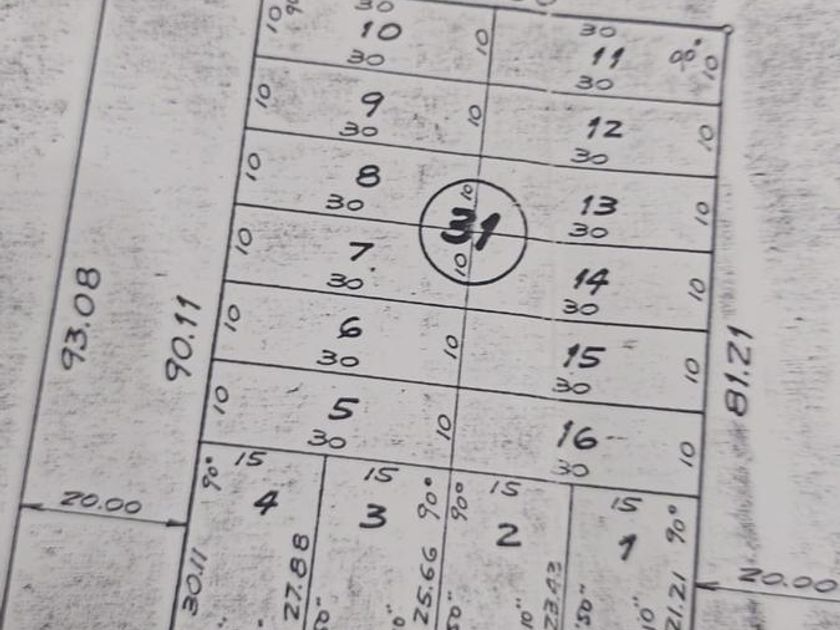 30
10 90° 10 10 30
30 11 90° 10
30
10 9 10
30 12 10
30
10 8 10
30 13 10
30
31
10 7 10
30 14 10
30
10 6 10
30 15 10
30
10 5 10
30 16 10
30
93.08
90.11
81.21
90° 15 15 90° 90° 15 15 90°
4 3 2 1
20.00 20.00
30.11 27.88 25.66 23.43 21.21
50" 10" 50" 10" 50" 10"